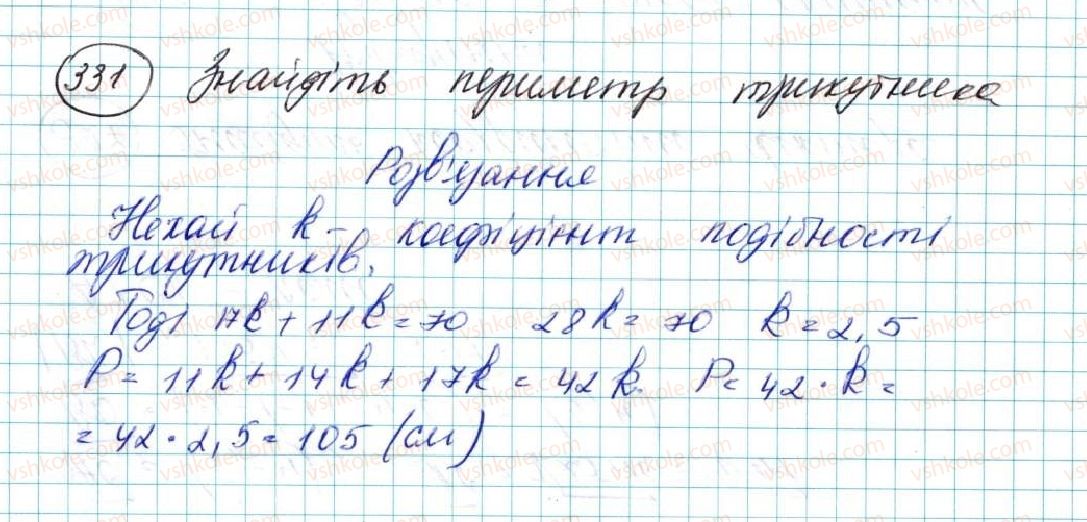 331 Знайдіть периметр трикутника
Розв'язання
Нехай k - коефіцієнт подібності
трикутників.
Тоді 17k + 11k = 70 28k = 70 k = 2,5
P = 11k + 14k + 17k = 42k. P = 42 · k =
= 42 · 2,5 = 105 (см)